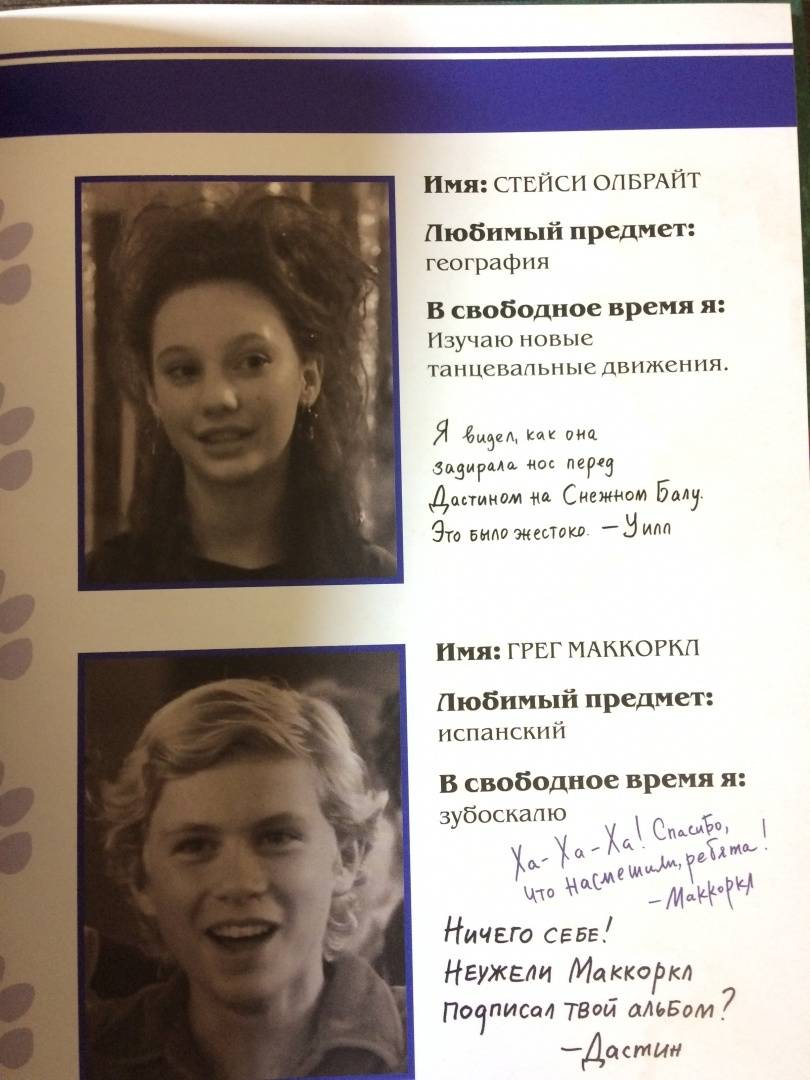 Имя: СТЕЙСИ ОЛБРАЙТ
Любимый предмет:
география
В свободное время я:
Изучаю новые
танцевальные движения.
Я видел, как она
задирала нос перед
Дастином на Снежном Балу.
Это было жестоко. —Уилл
Имя: ГРЕГ МАККОРКЛ
Любимый предмет:
испанский
В свободное время я:
зубоскалю
Ха-Ха-Ха! Спасибо,
что насмешили, ребята!
—Маккоркл
Ничего себе!
Неужели Маккоркл
подписал твой альбом?
—Дастин